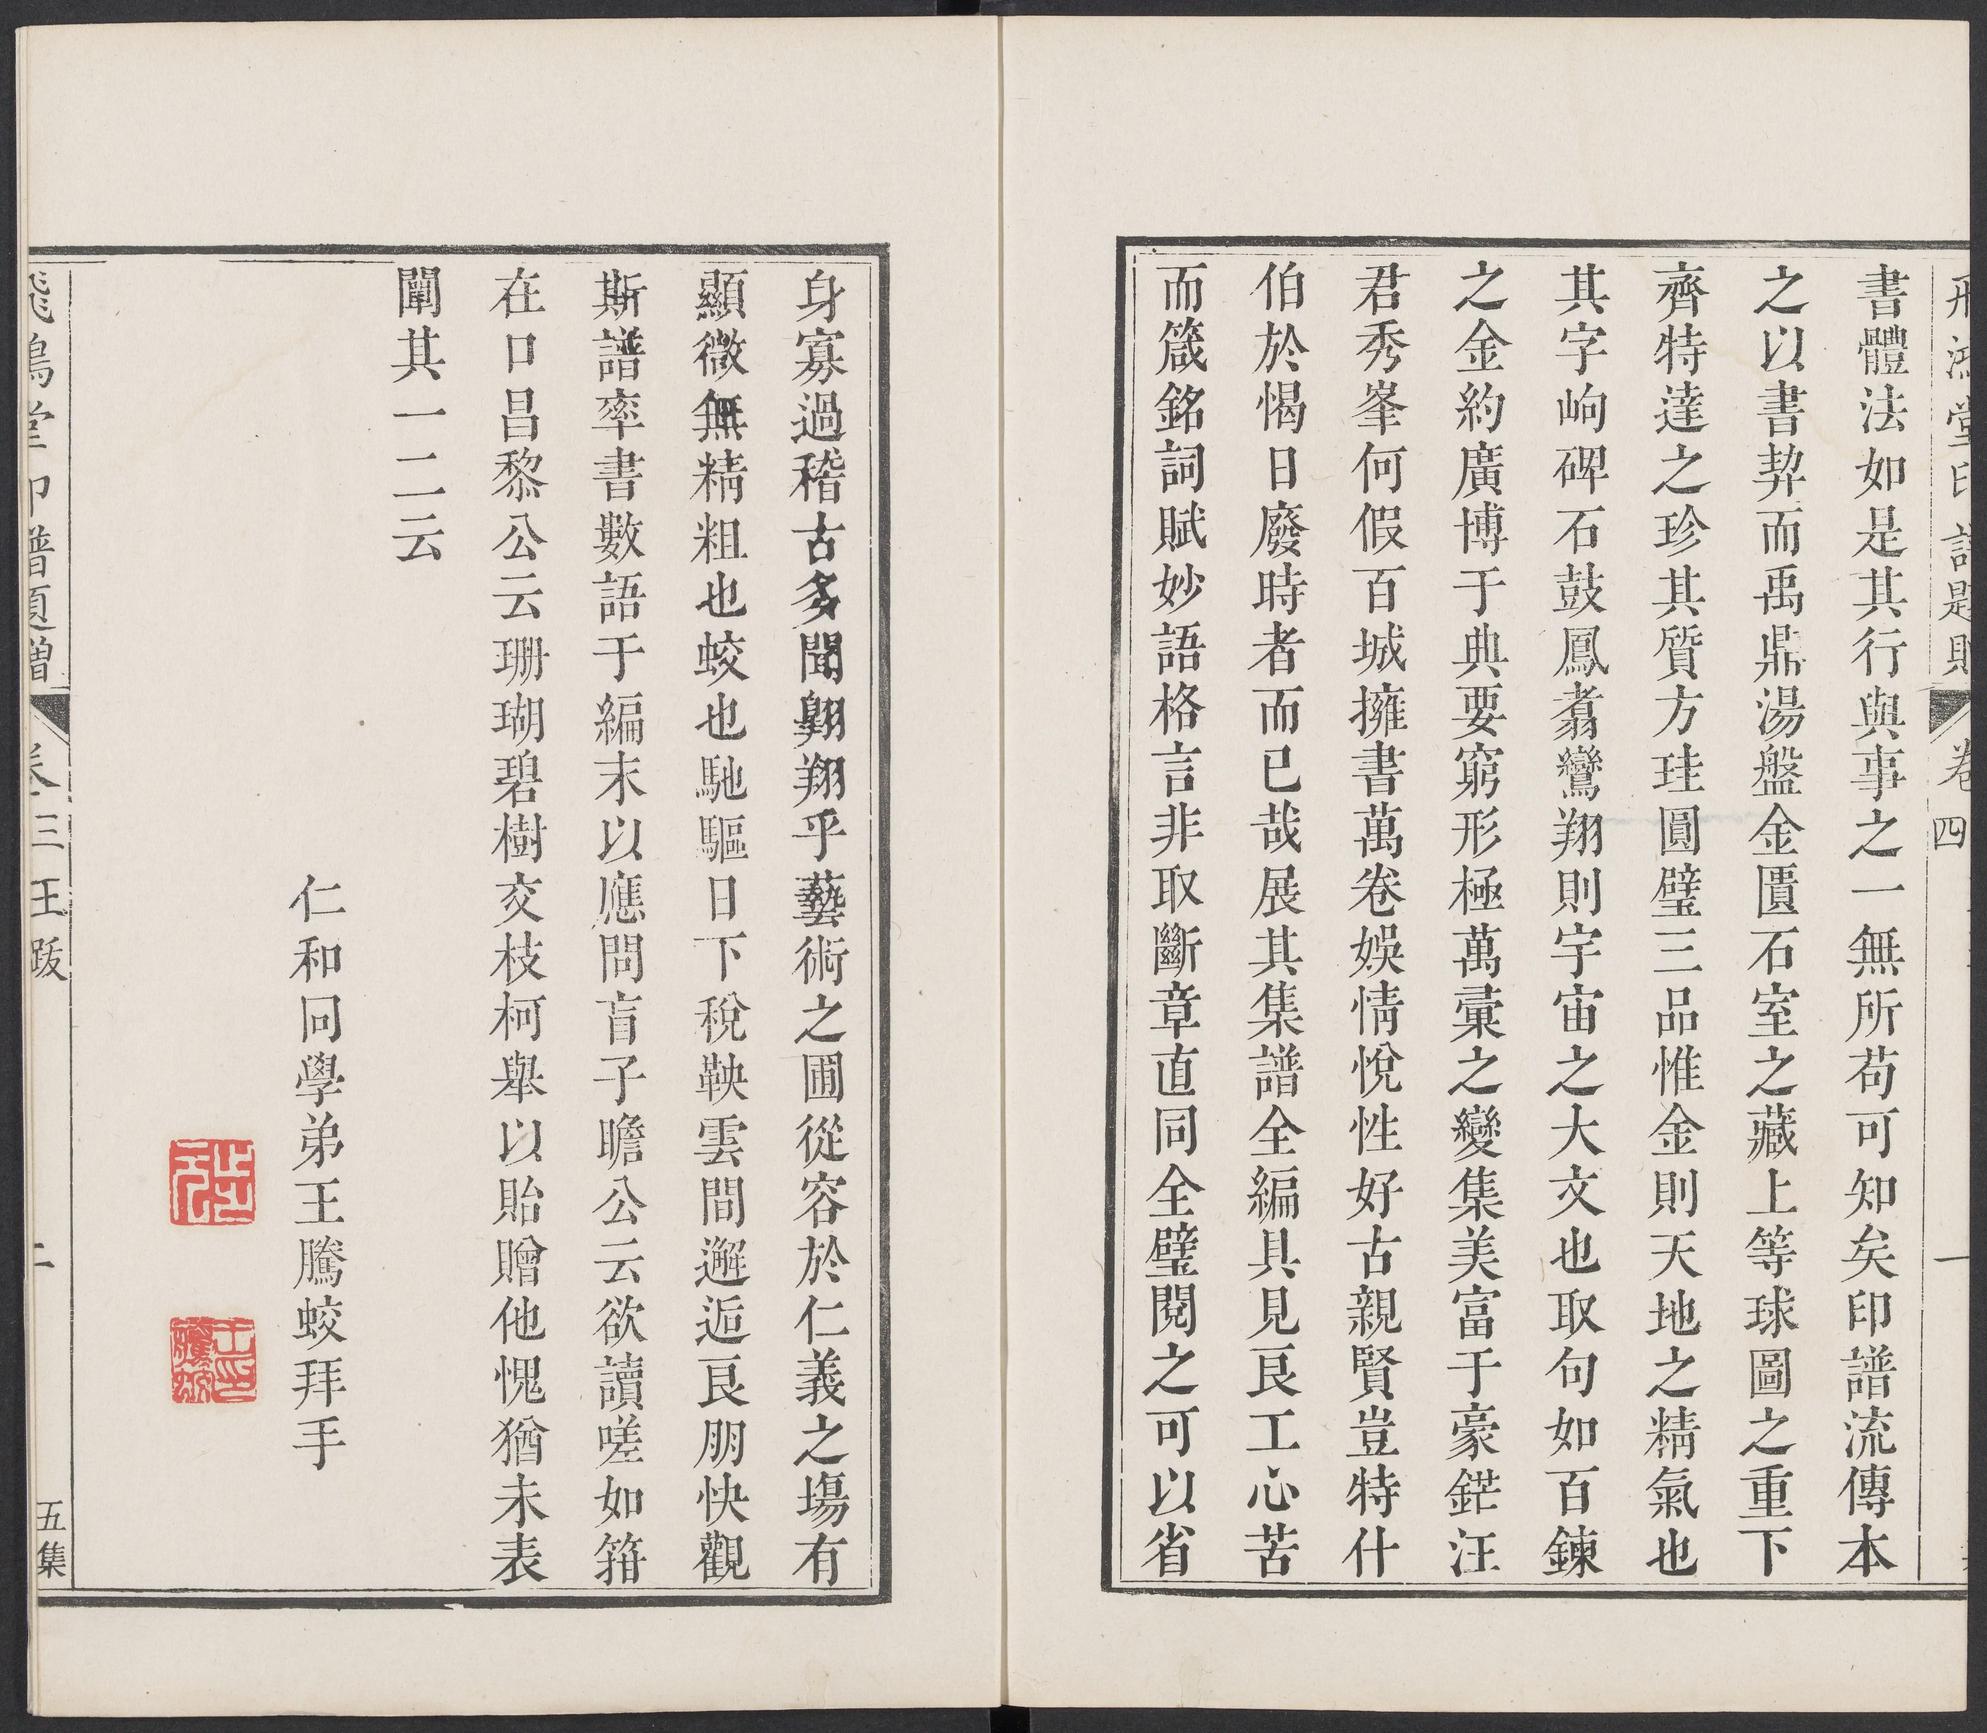 飛鴻堂印譜題贈 卷四 一
書體法如是其行與事之一無所苟可知矣印譜流傳本
之以書契而禹鼎湯盤金匱石室之藏上等球圖之重下
齊特達之珍其質方珪圓璧三品惟金則天地之精氣也
其字岣碑石鼓鳳翥鸞翔則宇宙之大文也取句如百鍊
之金約廣博于典要窮形極萬彚之變集美富于豪鋩汪
君秀峯何假百城擁書萬卷娛情悅性好古親賢豈特什
伯於愒日廢時者而已哉展其集譜全編具見良工心苦
而箴銘詞賦妙語格言非取斷章直同全璧閱之可以省
身寡過稽古多聞翺翔乎藝術之圃從容於仁義之塲有
顯微無精粗也蛟也馳驅日下稅鞅雲間邂逅良朋快觀
斯譜率書數語于編末以應問盲子瞻公云欲讀嗟如箝
在口昌黎公云珊瑚碧樹交枝柯舉以貽贈他愧猶未表
闡其一二云
仁和同學弟王騰蛟拜手
王印騰蛟
飛鴻堂印譜題贈 卷三 王跋 二 五集